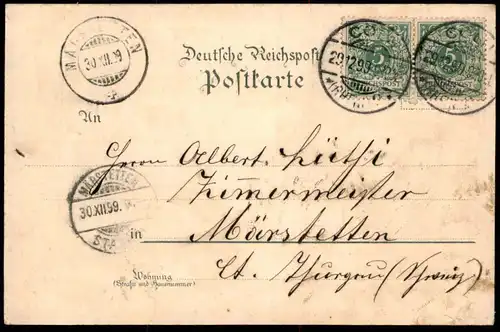 MÄRSTETTEN
30.XII.99
Deutsche Reichspost
Postkarte
29.12.99
5
5
REICHSPOST
An
Herrn Albert Lüthi
Zimmermeister
MÄRSTETTEN
30.XII.99.
in Märstetten
Ct. Thurgau (Schweiz)
Wohnung
(Straße und Hausnummer)